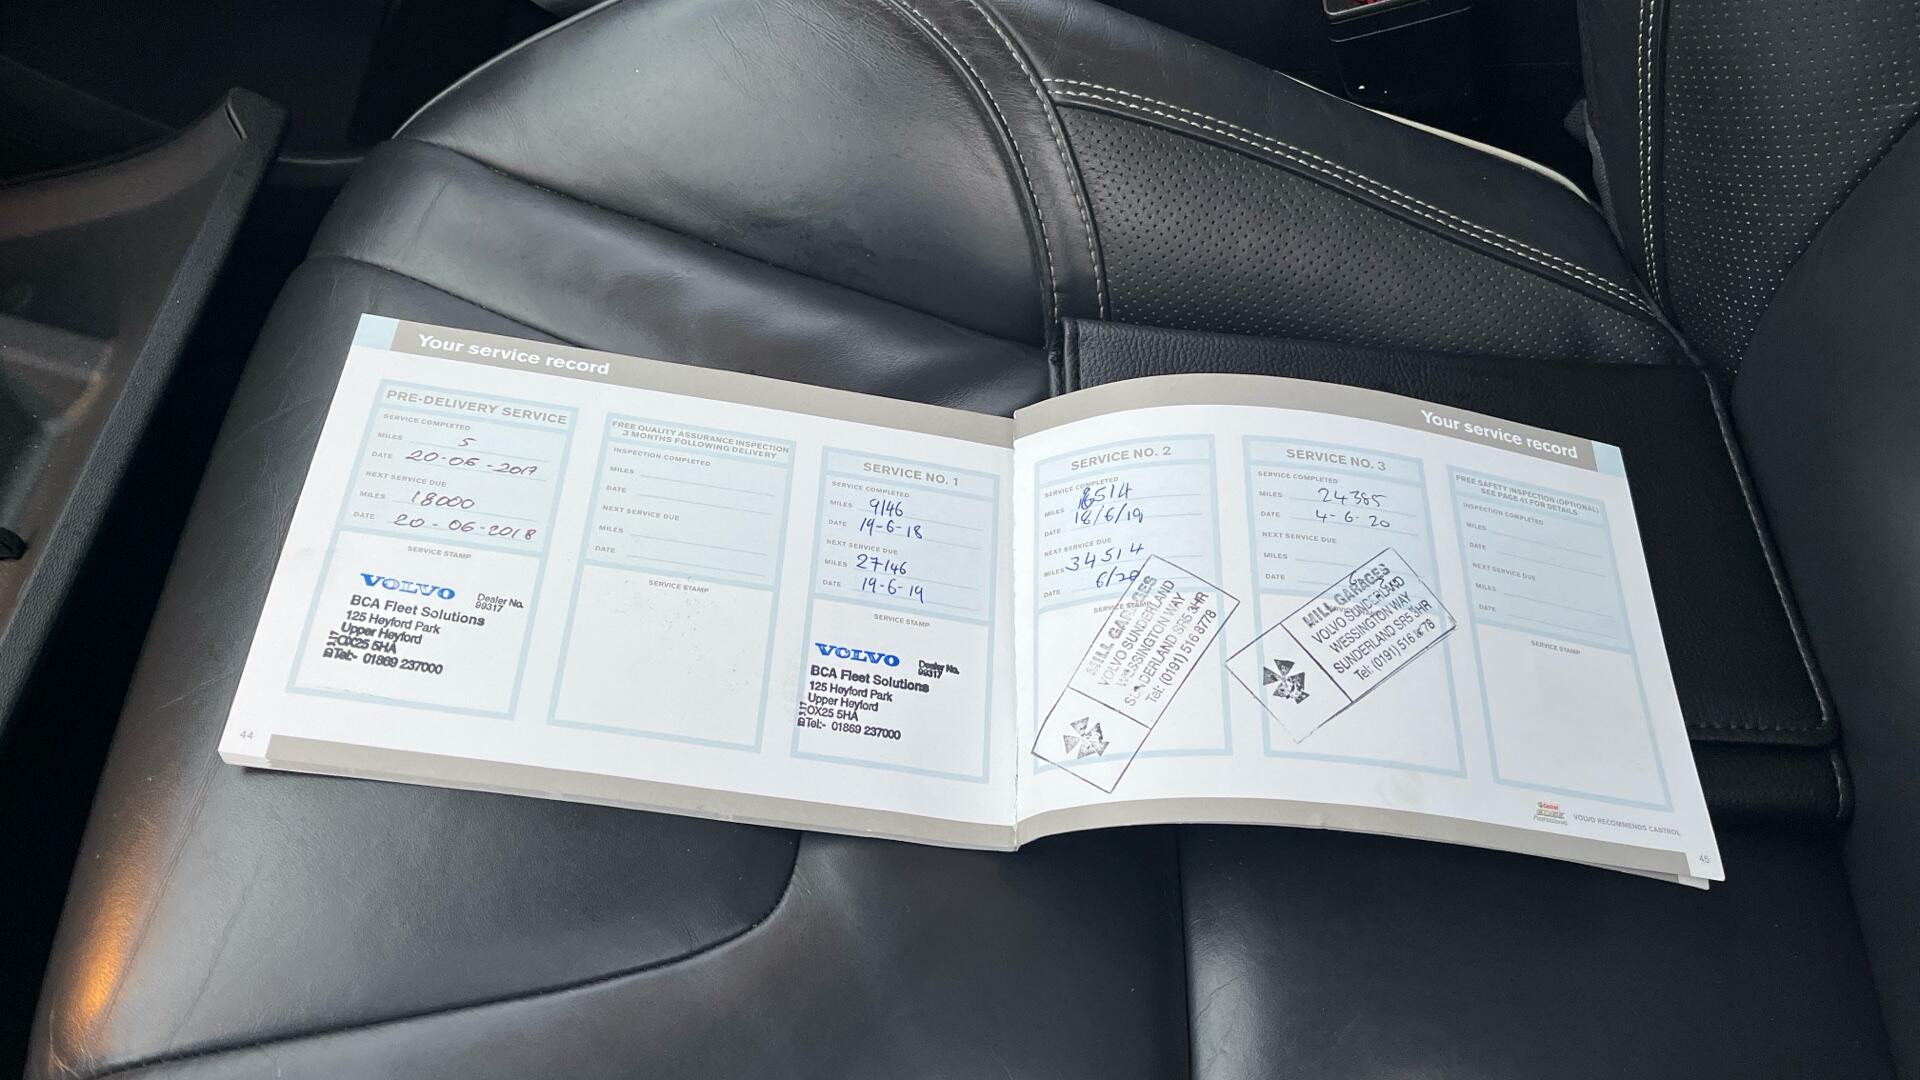 Your service record
PRE-DELIVERY SERVICE
SERVICE COMPLETED
MILES 5
DATE 20-06-2017
NEXT SERVICE DUE
MILES 18000
DATE 20-06-2018
SERVICE STAMP
VOLVO
Dealer No.
99317
BCA Fleet Solutions
125 Heyford Park
Upper Heyford
OX25 5HA
Tel:- 01869 237000
44
FREE QUALITY ASSURANCE INSPECTION
3 MONTHS FOLLOWING DELIVERY
INSPECTION COMPLETED
MILES
DATE
NEXT SERVICE DUE
MILES
DATE
SERVICE STAMP
SERVICE NO. 1
SERVICE COMPLETED
MILES 9146
DATE 19-6-18
NEXT SERVICE DUE
MILES 27146
DATE 19-6-19
SERVICE STAMP
VOLVO
Dealer No.
99317
BCA Fleet Solutions
125 Heyford Park
Upper Heyford
OX25 5HA
Tel:- 01869 237000
Your service record
SERVICE NO. 2
SERVICE COMPLETED
MILES
DATE 18/6/19
NEXT SERVICE DUE
MILES 34514
DATE 6/20
SERVICE STAMP
MILL GARAGES
VOLVO SUNDERLAND
WESSINGTON WAY
SUNDERLAND SR5 3HR
Tel: (0191) 516 8778
SERVICE NO. 3
SERVICE COMPLETED
MILES 24385
DATE 4-6-20
NEXT SERVICE DUE
MILES
DATE
MILL GARAGES
VOLVO SUNDERLAND
WESSINGTON WAY
SUNDERLAND SR5 3HR
Tel: (0191) 516
FREE SAFETY INSPECTION (OPTIONAL)
SEE PAGE 41 FOR DETAILS
INSPECTION COMPLETED
MILES
DATE
NEXT SERVICE DUE
MILES
DATE
SERVICE STAMP
Castrol
EDGE
Professional
VOLVO RECOMMENDS CASTROL
45